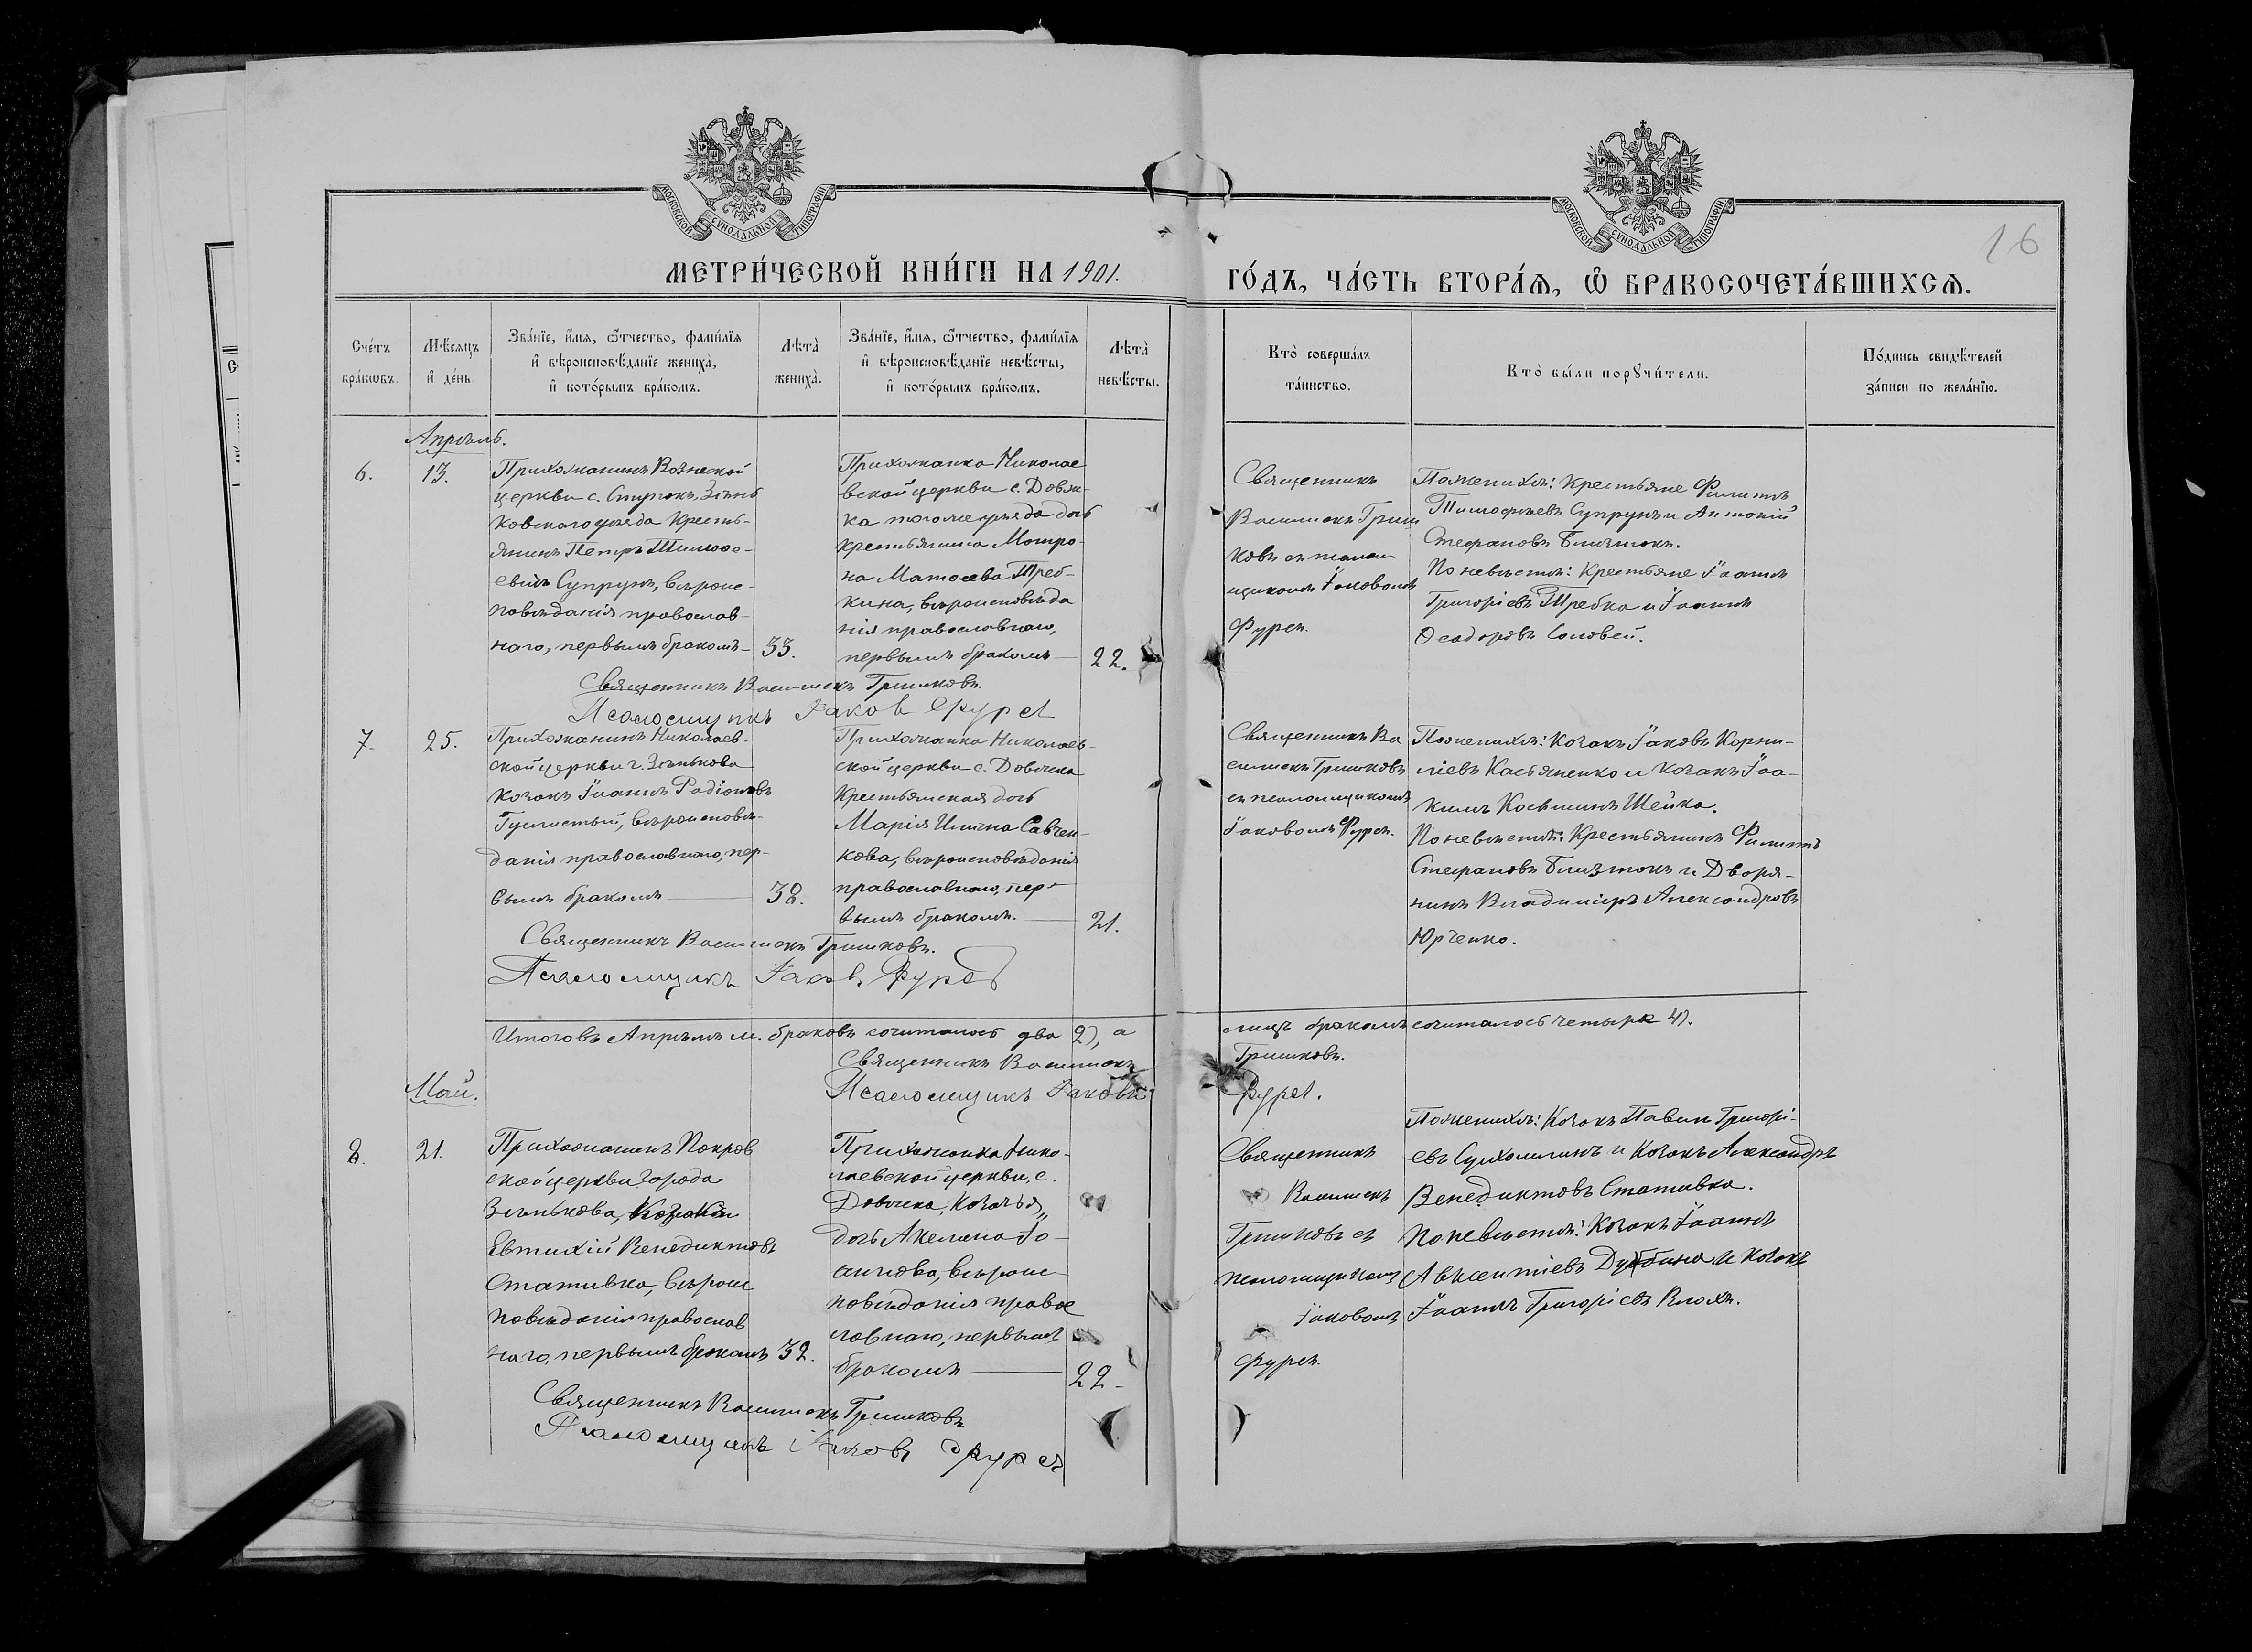 МОСКОВСКОЙ СѴНОДАЛЬНОЙ ТИПОГРАФІИ
МОСКОВСКОЙ СѴНОДАЛЬНОЙ ТИПОГРАФІИ
16
МЕТРИ́ЧЕСКОЙ КНИ́ГИ НА 1901.
ГО́ДЪ, ЧА́СТЬ ВТОРА́Ѧ, Ѡ҆ БРАКОСОЧЕТА́ВШИХСѦ.
Сче́тъ бра́кѡвъ.
Мѣ́сѧцъ и҆ де́нь
Зва́нїе, и҆́мѧ, ѻ҆́тчество, фами́лїѧ и҆ вѣроисповѣ́данїе жениха̀, и҆ кото́рымъ бра́комъ.
Лѣта̀ жениха̀.
Зва́нїе, и҆́мѧ, ѻ҆́тчество, фами́лїѧ и҆ вѣроисповѣ́данїе невѣ́сты, и҆ кото́рымъ бра́комъ.
Лѣта̀ невѣ́сты.
Кто̀ соверша́лъ та́инство.
Кто̀ бы́ли порꙋчи́тели.
По́дпись свидѣ́телей за́писи по жела́нїю.
Апрѣль.
6.
13.
Прихожанинъ
церкви с. Ступокъ, Зѣнь
ковскаго уѣзда Кресть-
янинъ Петръ Тимоѳе-
евичъ Супрунъ, вѣроис-
повѣданія православ-
наго, первымъ бракомъ
33.
Прихожанка Николае
вской церкви с. Довж-
ка того же уѣзда дочь
крестьянина Мотро-
на Матѳеева Треб-
кина, вѣроисповѣда
нія православнаго,
первымъ бракомъ
22.
Священникъ
Василискъ Гриш
ковъ съ псалом
щикомъ Іаковомъ
Фурса.
По женихѣ: Крестьяне Филиппъ
Тимофѣевъ Супрунъ и Антоній
Стефановъ Близнюкъ.
По невѣстѣ: Крестьяне Іоаннъ
Григоріевъ Требка и Іоаннъ
Ѳеодоровъ Соловей.
Священникъ Василискъ Гришковъ.
Псаломщикъ Іаковъ Фурса
7.
25.
Прихожанинъ Николаев-
ской церкви г. Зѣнькова
козакъ Іоаннъ Радіоновъ
вѣроисповѣ-
данія православнаго, пер-
вымъ бракомъ
32.
Прихожанка Николаев-
ской церкви с. Довжка
Крестьянская дочь
Марія Ильина Савчен-
кова, вѣроисповѣданія
православнаго, пер-
вымъ бракомъ.
21.
Священникъ Ва
силискъ Гришковъ
съ псаломщикомъ
Іаковомъ Фурса.
По женихѣ: Козакъ Іаковъ Корни-
ліевъ Касьяненко и козакъ Іоа-
кимъ Косьминъ Шейка.
По невѣстѣ: Крестьянинъ Филиппъ
Стефановъ Близнюкъ и Дворя-
нинъ Владиміръ Александровъ
Юрченко.
Священникъ Василискъ Гришковъ.
Псаломщикъ Іаковъ Фурса
Итого въ Апрѣлѣ м. браковъ сочиталось два 2), а лицъ бракомъ сочиталось четыре 4).
Священникъ Василискъ Гришковъ.
Псаломщикъ Іаковъ Фурса.
Май.
8.
21.
Прихожанинъ Покров
ской церкви города
Зѣнькова, Козакъ
Евтихій Венедиктовъ
Стативка, вѣроис
повѣданія православ
наго, первымъ бракомъ
32.
Прихожанка Нико-
лаевской церкви, с.
Довжка, Козачья
дочь Акелина Іо-
вѣроис-
повѣданія право
славнаго, первымъ
бракомъ
22
Священникъ
Василискъ
Гришковъ съ
псаломщикомъ
Іаковомъ
Фурса.
По женихѣ: Козакъ Павелъ Григорі-
евъ Сухолинъ и Козакъ Александръ
Венедиктовъ Стативка.
По невѣстѣ: Козакъ Іоаннъ
Авксентіевъ и козакъ
Іоаннъ Григоріевъ Влохъ.
Священникъ Василискъ Гришковъ
Псаломщикъ Іаковъ Фурса